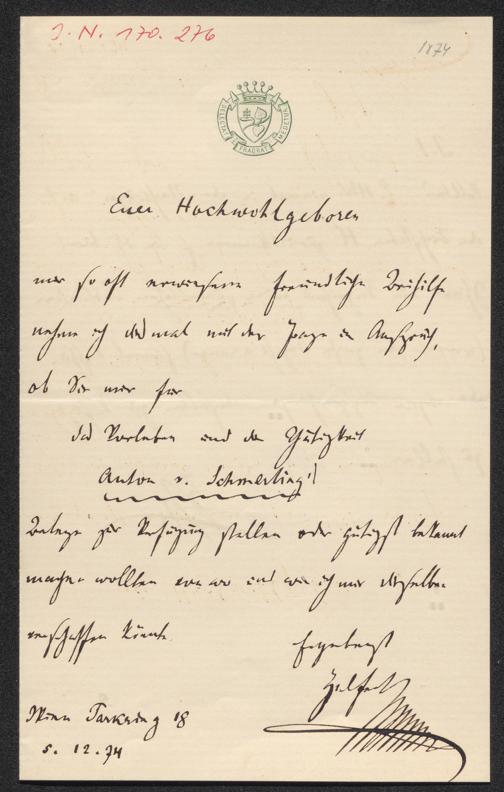 J. N. 170. 276
1874
Euer Hochwohlgeboren
mir so oft erwiesene freundliche Beihilfe
nehme ich diesmal mit der Frage in Anspruch,
ob Sie mir für
das Vorleben und die Thätigkeit
Anton v. Schmerling's
Belege zur Verfügung stellen oder gütigst bekannt
machen wollten von wo und wie ich mir dieselben
verschaffen könnte.
Ergebenst
Helfert
Wien Parkring 18
5. 12. 74